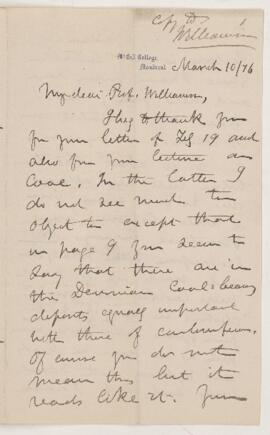 Copy Dr
Williamson
McGill College,
Montreal
March 10/76
My dear Prof. Williamson,
I beg to thank you
for your letter of Feb 19 and
also for your lecture on
Coal. In the latter I
do not see much to
object to except that
in page 9 you seem to
say that there are in
the Devonian Coal bearing
deposits equally important
with those of carboniferous.
Of course you do not
mean this but it
reads like it. Your